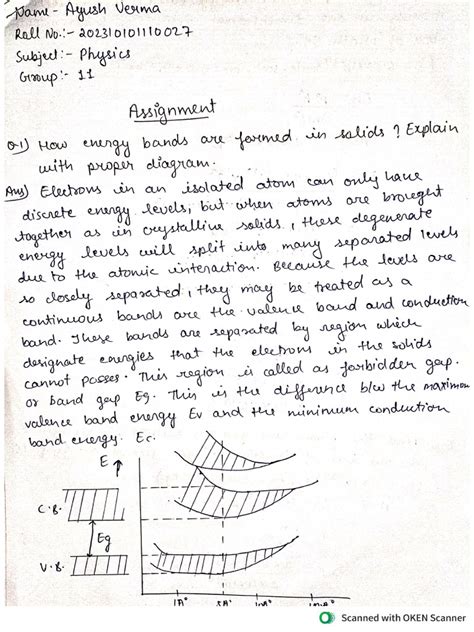 Name - Ayush Verma
Roll No.:- 202310101110027
Subject:- Physics
Group:- 11
Assignment
Q1) How energy bands are formed in solids? Explain
with proper diagram.
Ans) Electrons in an isolated atom can only have
discrete energy levels, but when atoms are brought
together as in crystalline solids, these degenerate
energy levels will split into many separated levels
due to the atomic interaction. Because the levels are
so closely separated, they may be treated as a
continuous bands are the valence band and conduction
band. These bands are separated by region which
designate energies that the electrons in the solids
cannot posses. This region is called as forbidder gap.
or band gap Eg. This is the difference b/w the maximum
valence band energy Ev and the minimum conduction
band energy. Ec.
E
C.B.
Eg
V.B.
1A° 5A° 10A°
Scanned with OKEN Scanner